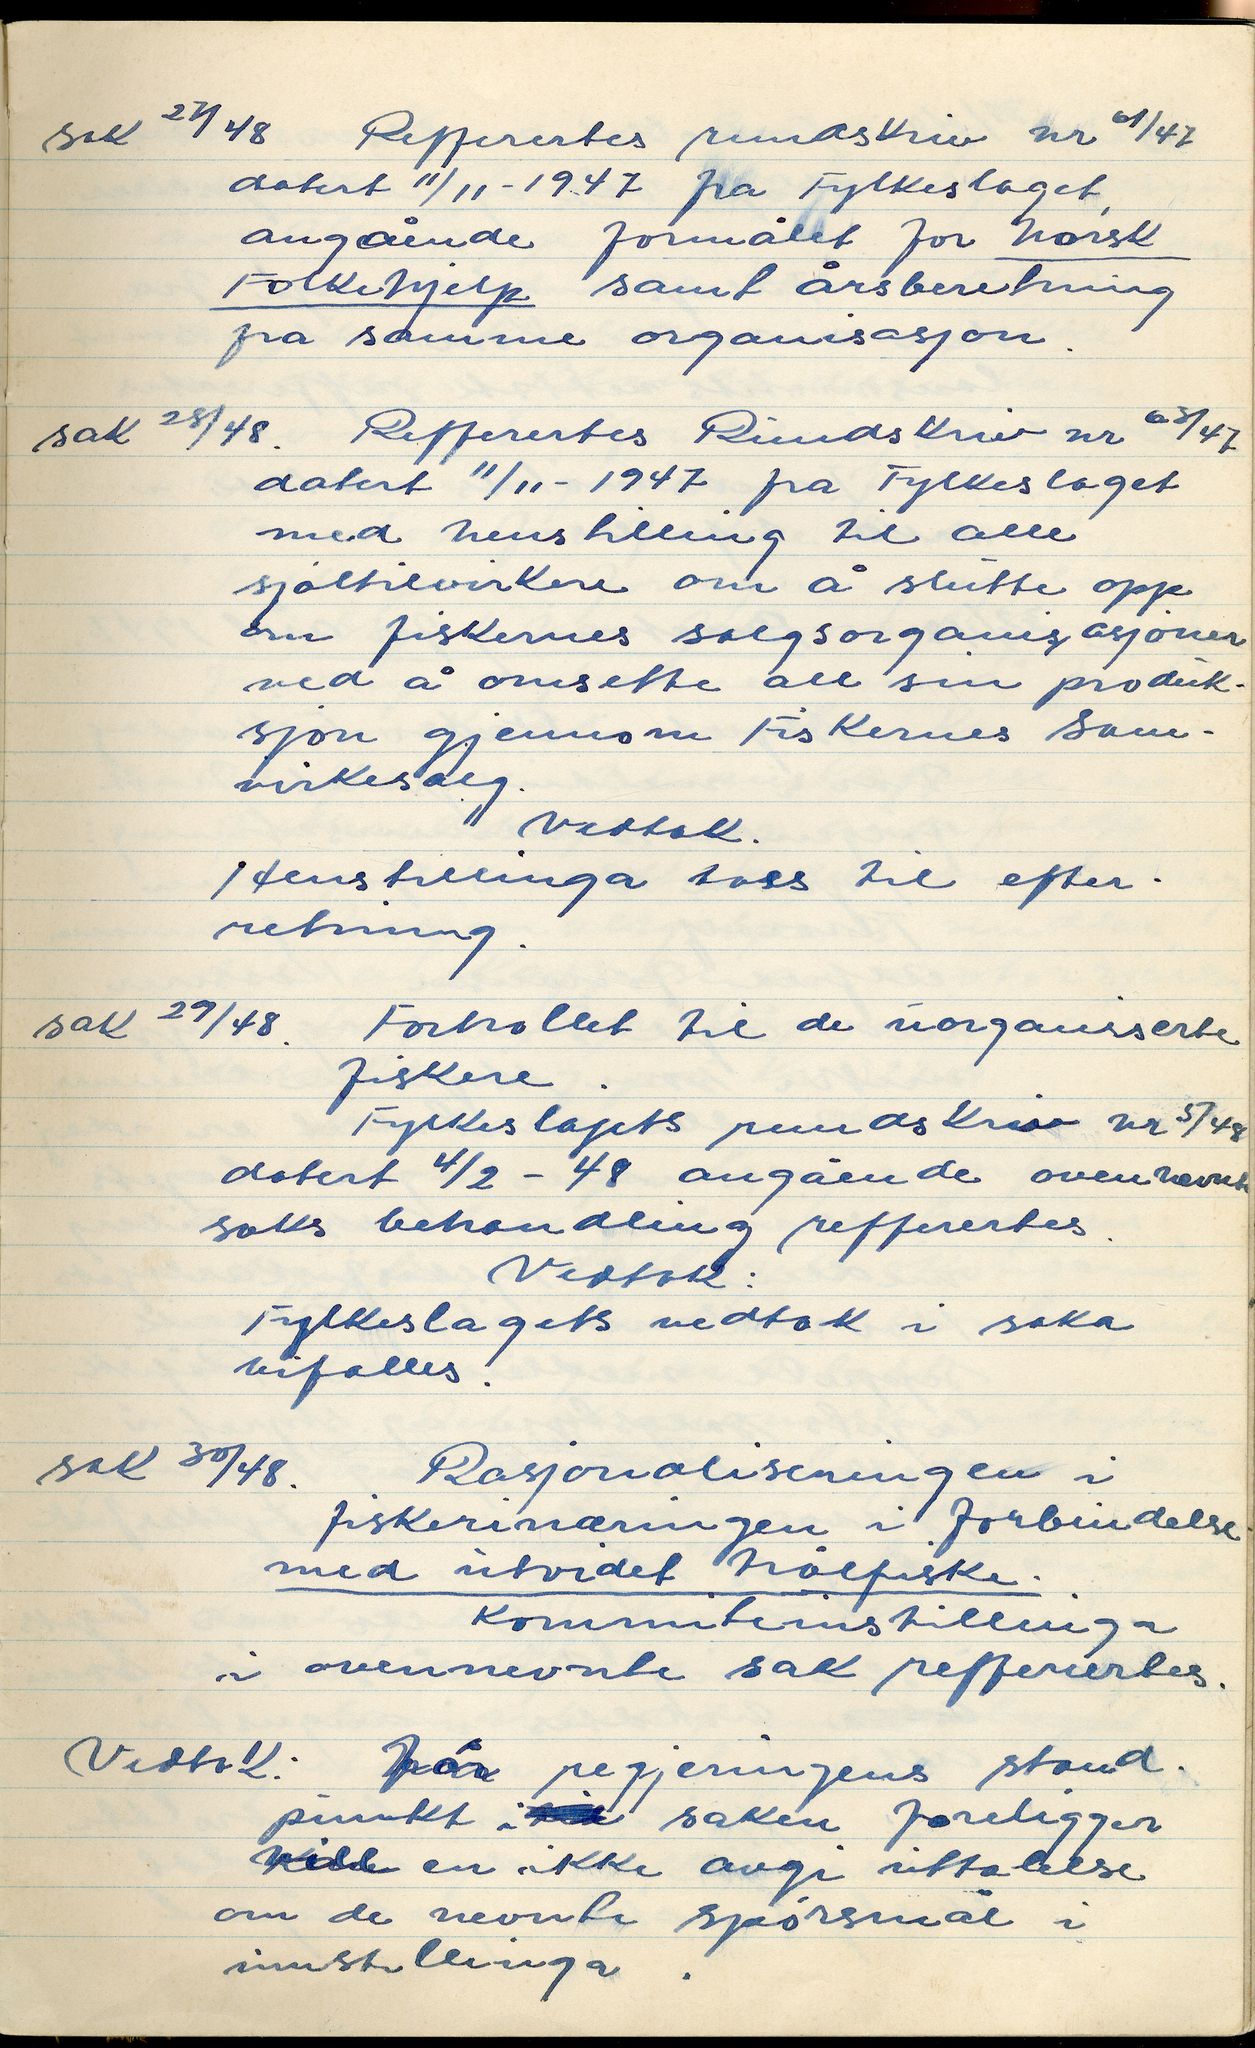 sak 27/48 Refferertes rundskriv nr 61/47
datert 11/11-1947 fra Fylkeslaget,
angående formålet for Norsk
Folkehjelp samt årsberetning
fra samme organisasjon.
sak 28/48. Refferertes Rundskriv nr 63/47
datert 11/11-1947 fra Fylkeslaget
med henstilling til alle
sjøltilvirkere om å slutte opp
om fiskernes salgsorganisasjoner
ved å omsette all sin produk-
sjon gjennom Fiskernes Sam-
virkesalg.
Vedtak.
Henstillinga tass til efter-
retning.
sak 29/48. Forhollet til de uorganisserte
fiskere.
Fylkeslagets rundskriv nr 5/48
datert 4/2-48 angående ovennevnte
saks behandling refferertes.
Vedtak:
Fylkeslagets vedtak i saka
bifalles.
sak 30/48. Rasjonaliseringen i
fiskerinæringen i forbindelse
med utvidet trålfiske.
Kommiteinstillinga
i ovennevnte sak refferertes.
Vedtak: Før regjeringens stand-
punkt i saken foreligger
vill en ikke avgi uttalelse
om de nevnte spørsmål i
innstillinga.